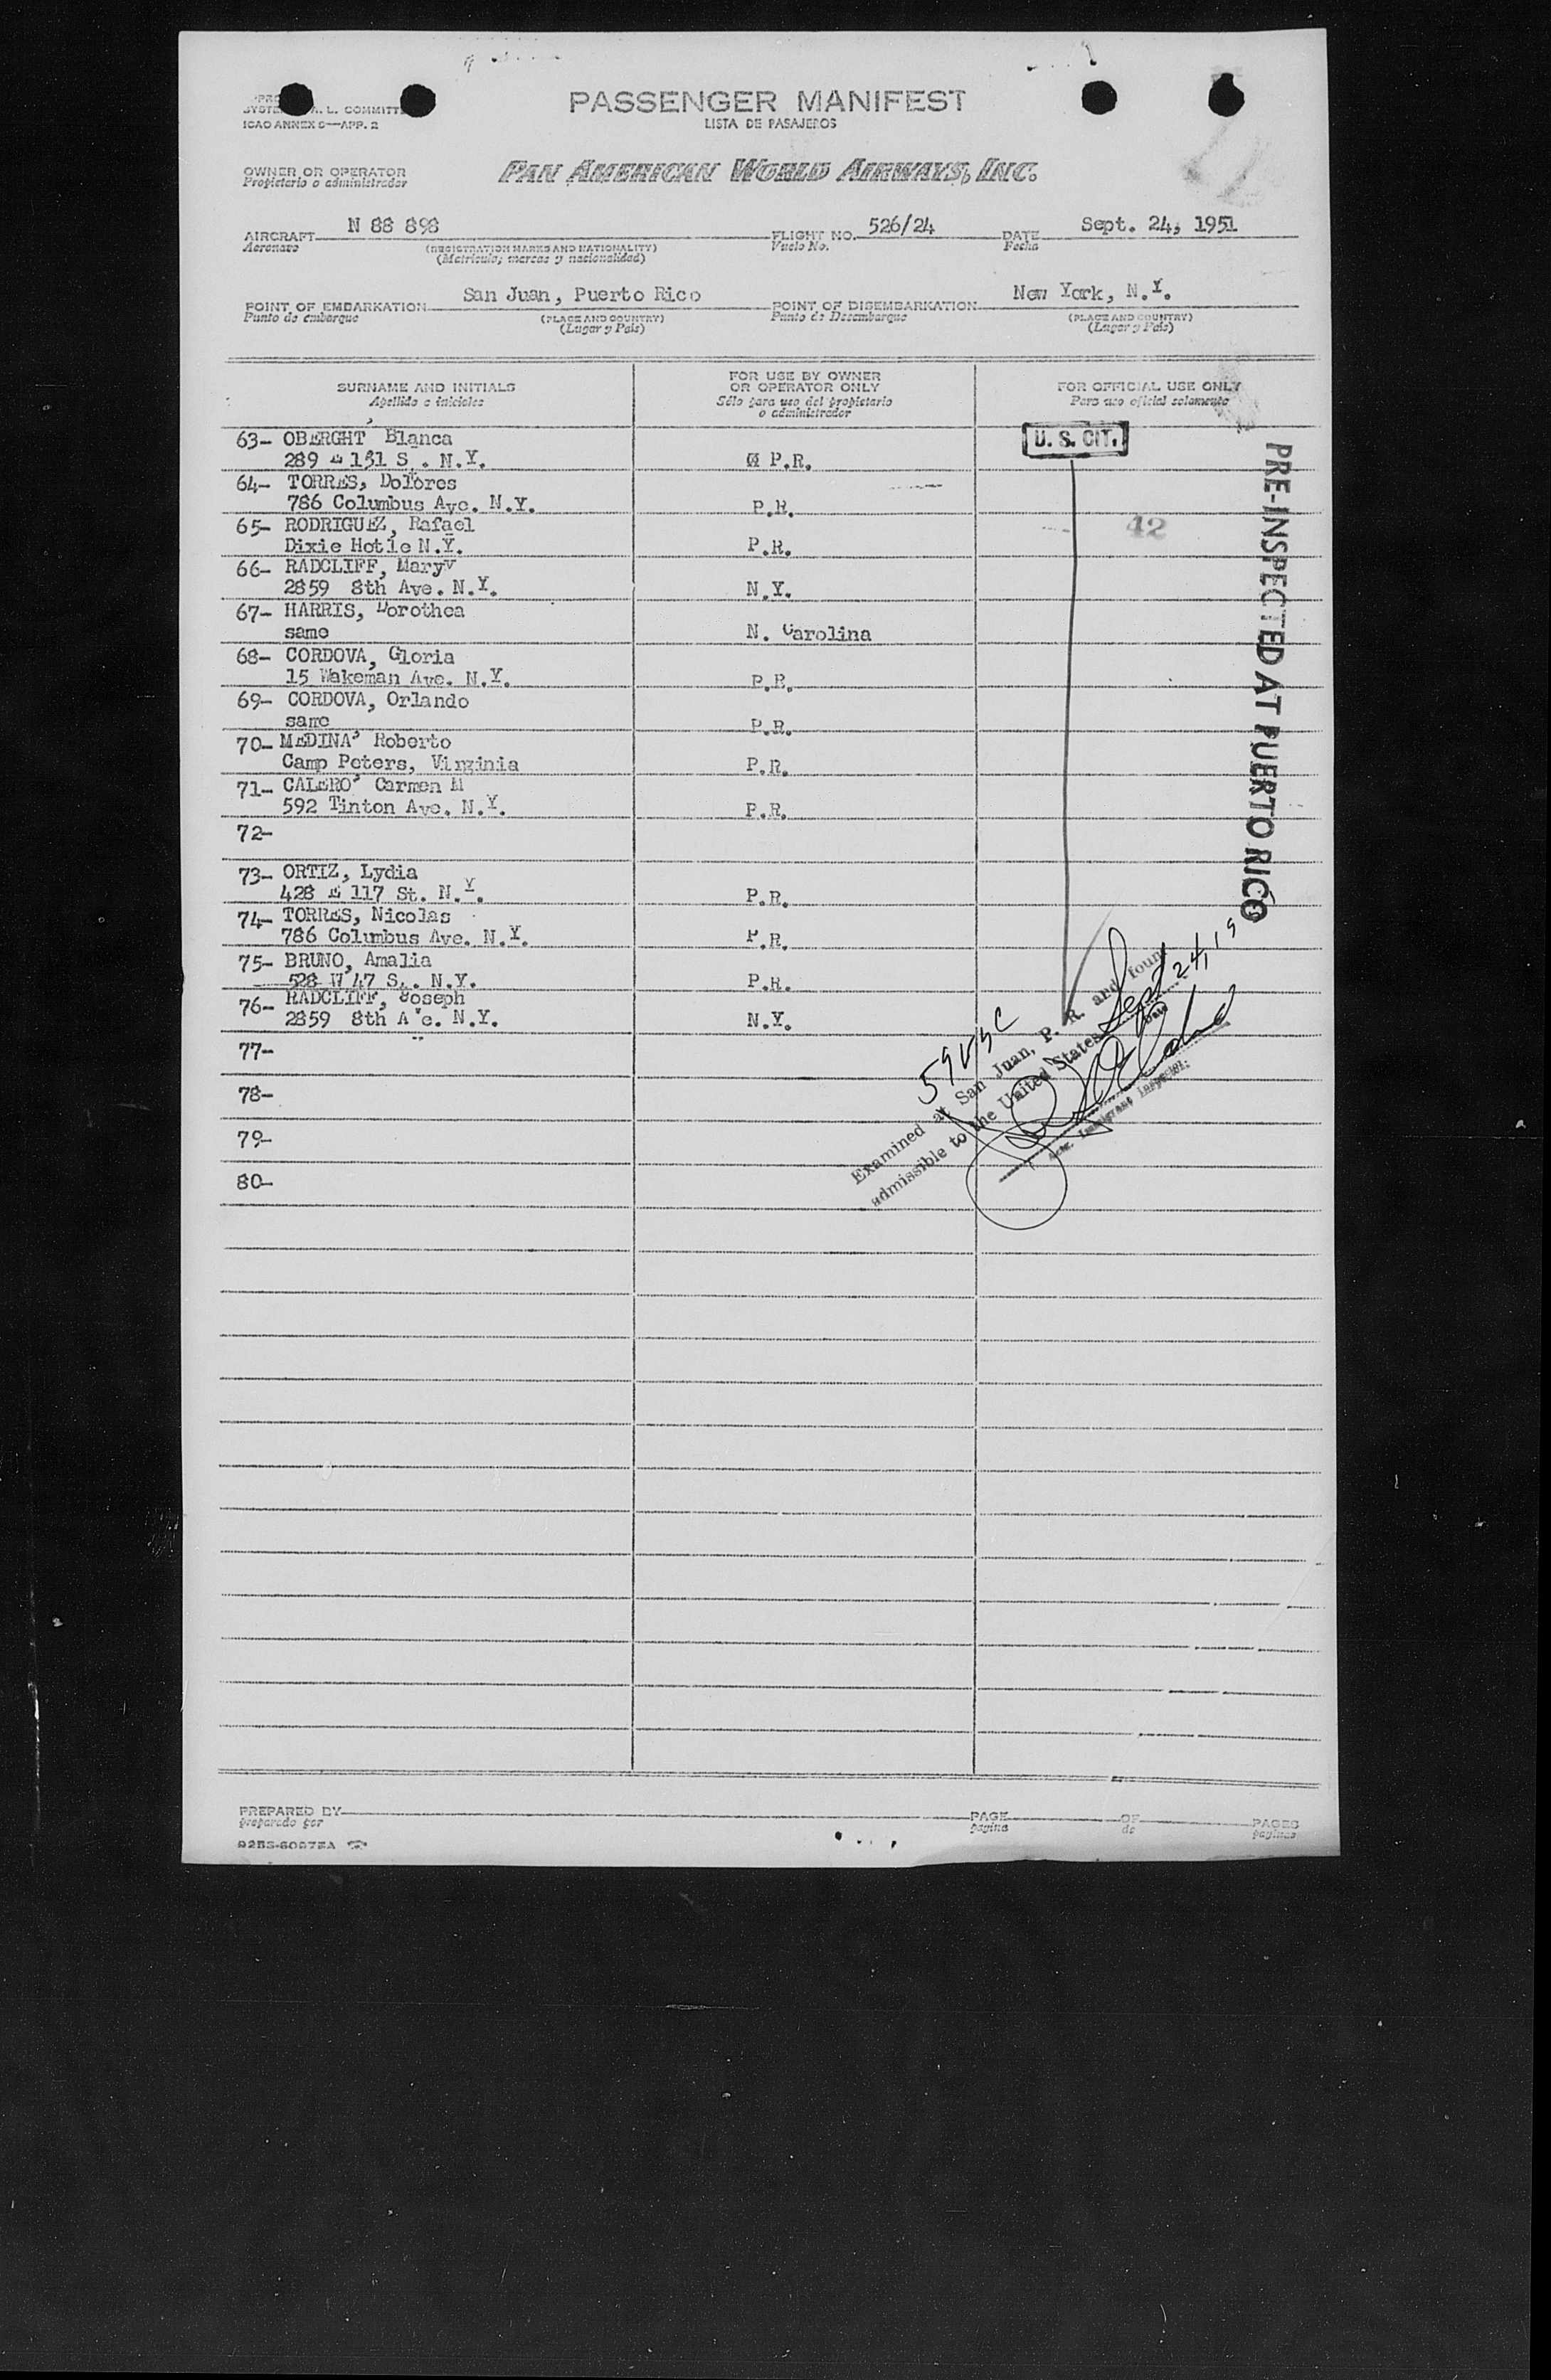 L. COMMITT
ICAO ANNEX 9—APP. 2
PASSENGER MANIFEST
LISTA DE PASAJEROS
OWNER OR OPERATOR
Propietario o administrador
PAN AMERICAN WORLD AIRWAYS, INC.
AIRCRAFT N 88 898 FLIGHT NO. 526/24 DATE Sept. 24, 1951
Aeronave (REGISTRATION MARKS AND NATIONALITY) Vuelo No. Fecha
(Matrícula, marcas y nacionalidad)
POINT OF EMBARKATION San Juan, Puerto Rico POINT OF DISEMBARKATION New York, N.Y.
Punto de embarque (PLACE AND COUNTRY) Punto de Desembarque (PLACE AND COUNTRY)
(Lugar y País) (Lugar y País)
SURNAME AND INITIALS FOR USE BY OWNER OR OPERATOR ONLY FOR OFFICIAL USE ONLY
Apellido e iniciales Sólo para uso del propietario o administrador Para uso oficial solamente
63- OBERGHT, Blanca U. S. CIT.
289 E 151 S . N.Y. P.R.
64- TORRES, Dolores
786 Columbus Ave. N.Y. P.R.
65- RODRIGUEZ, Rafael 42
Dixie Hotle N.Y. P.R.
66- RADCLIFF, Maryv
2859 8th Ave. N.Y. N.Y.
67- HARRIS, Dorothea
same N. Carolina
68- CORDOVA, Gloria
15 Wakeman Ave. N.Y. P.R.
69- CORDOVA, Orlando
same P.R.
70- MEDINA, Roberto
Camp Peters, Virginia P.R.
71- CALERO, Carmen M
592 Tinton Ave. N.Y. P.R.
72-
73- ORTIZ, Lydia
428 E 117 St. N.Y. P.R.
74- TORRES, Nicolas
786 Columbus Ave. N.Y. P.R.
75- BRUNO, Amalia
528 W 47 S . N.Y. P.R.
76- RADCLIFF, Joseph
2859 8th Ave. N.Y. N.Y.
77-
78-
79-
80-
PRE-INSPECTED AT PUERTO RICO
Examined at San Juan, P. R. and found
admissible to the United States Sept 24, 19
Date
Immigrant Inspector.
PREPARED BY PAGE OF PAGES
preparado por página de páginas